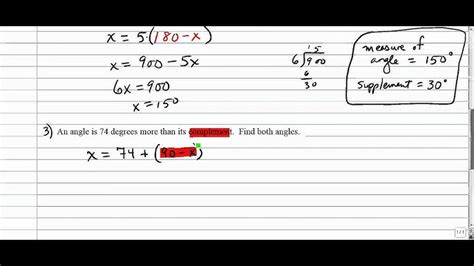 x = 5·(180-x)
x = 900 - 5x
6x = 900
x = 150
15
6)900
6
30
measure of
angle = 150°
supplement = 30°
3) An angle is 74 degrees more than its complement. Find both angles.
x = 74 + (90 - x)